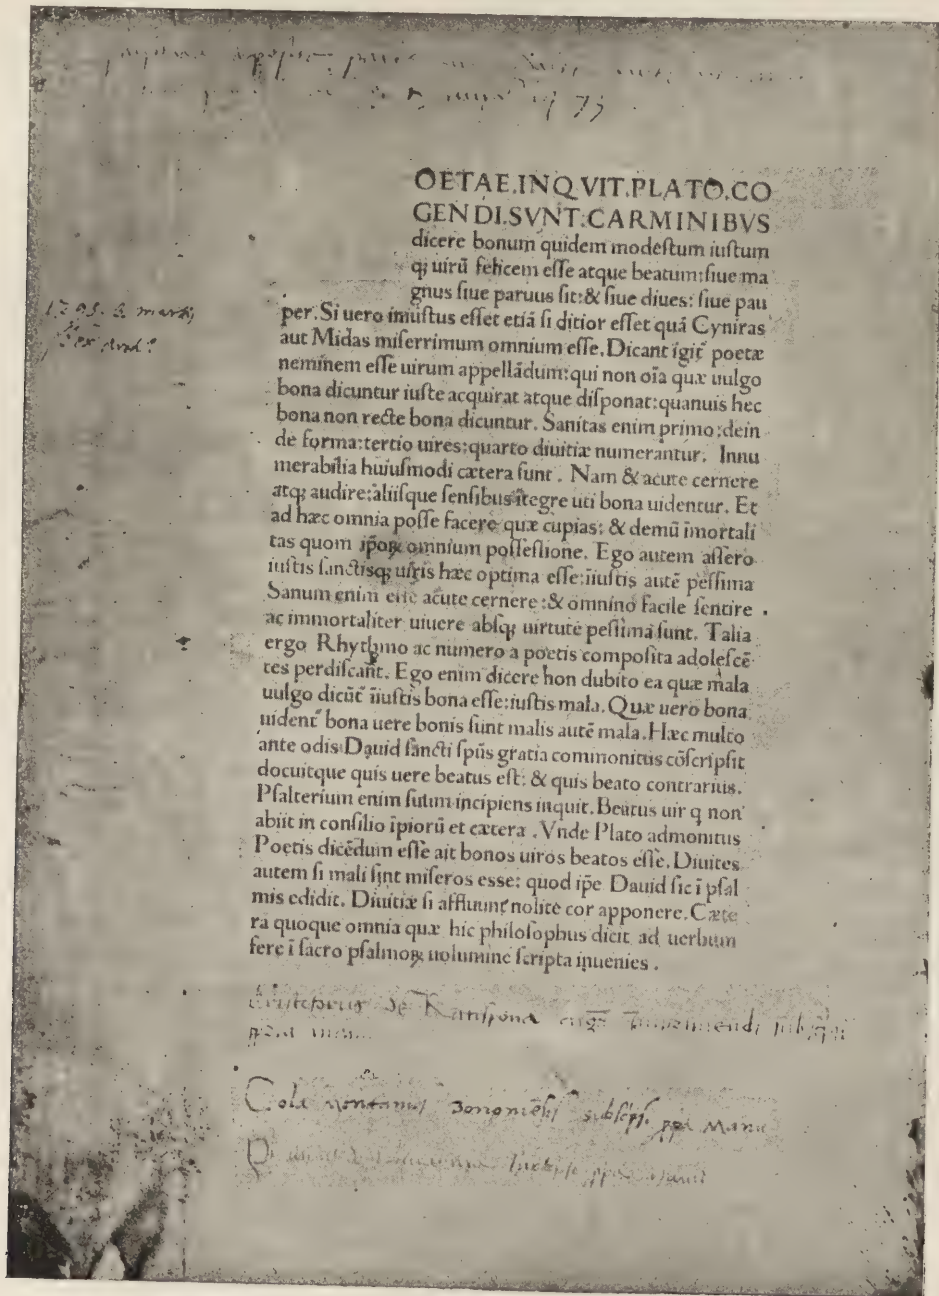 OETAE.INQVIT.PLATO.CO
GENDI.SVNT.CARMINIBVS
dicere bonum quidem modeſtum iuſtum
qꝫ uirū felicem eſſe atque beatum:ſiue ma
gnus ſiue paruus ſit:& ſiue diues: ſiue pau
per. Si uero iniuſtus eſſet etiā ſi ditior eſſet quā Cyniras
aut Midas miſerrimum omnium eſſe. Dicant igit̃ poetæ
neminem eſſe uirum appellādum:qui non oīa quæ uulgo
bona dicuntur iuſte acquirat atque diſponat:quanuis hec
bona non recte bona dicuntur. Sanitas enim primo:dein
de forma:tertio uires:quarto diuitiæ numerantur. Innu
merabilia huiuſmodi cætera ſunt. Nam & acute cernere
atqꝫ audire:aliiſque ſenſibus ītegre uti bona uidentur. Et
ad hæc omnia poſſe facere quæ cupias: & demū īmortali
tas quom ip̄oꝝ omnium poſſeſſione. Ego autem aſſero
iuſtis ſanctiſqꝫ uiris hæc optima eſſe:īiuſtis autē peſſima
Sanum enim eſſe acute cernere:& omnino facile ſentire
ac immortaliter uiuere abſqꝫ uirtute peſſima ſunt. Talia
ergo Rhythmo ac numero a poetis compoſita adoleſcē
tes perdiſcant. Ego enim dicere non dubito ea quæ mala
uulgo dicūt īiuſtis bona eſſe:iuſtis mala. Quæ uero bona
uident̃ bona uere bonis ſunt malis autē mala. Hæc multo
ante odis Dauid ſancti ſpūs gratia commonitus cōſcripſit
docuitque quis uere beatus eſt: & quis beato contrarius.
Pſalterium enim ſuum incipiens inquit. Beatus uir q non
abiit in conſilio īpiorū et cætera. Vnde Plato admonitus
Poetis dicēdum eſſe ait bonos uiros beatos eſſe. Diuites
autem ſi mali ſint miſeros esse: quod ip̄e Dauid ſic ī pſal
mis edidit. Diuitiæ ſi affluunt nolite cor apponere. Cæte
ra quoque omnia quæ hic philoſophus dicit ad uerbum
fere ī ſacro pſalmoꝝ uolumine ſcripta inuenies.
de Ratiſpona
Cola montanus Bononiēſis ſubſcpſi. pp̄a Manu